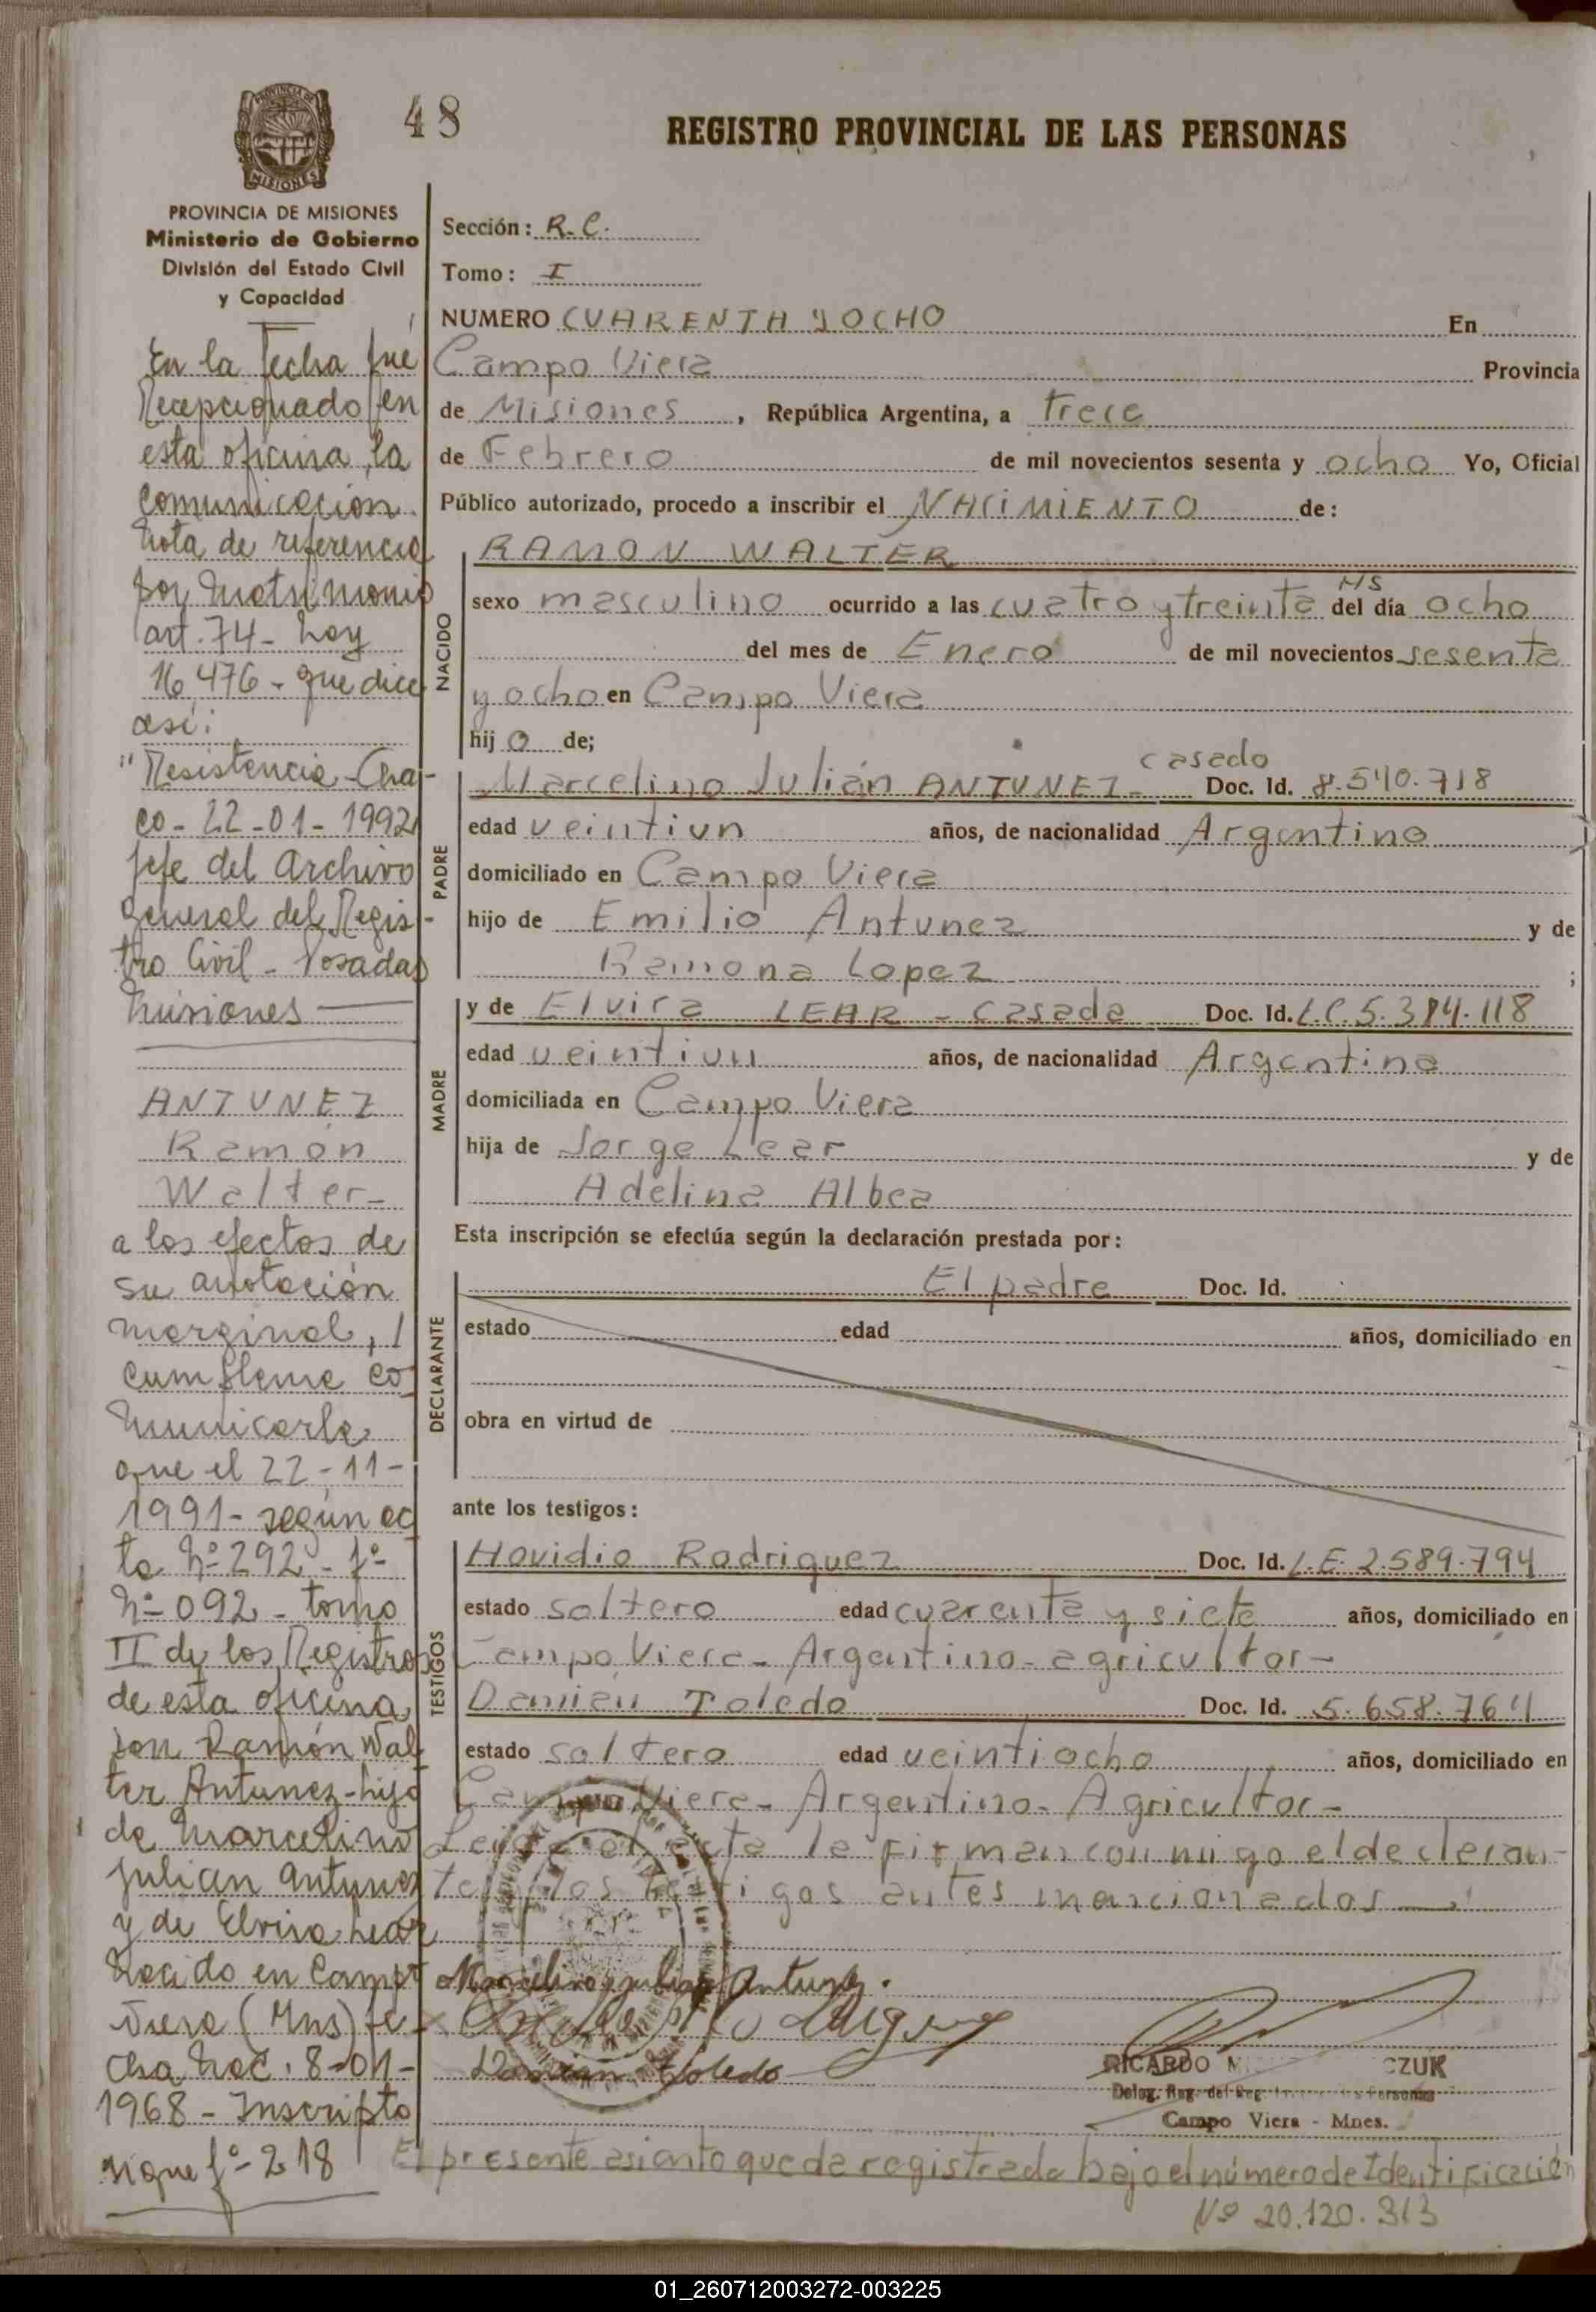 48
REGISTRO PROVINCIAL DE LAS PERSONAS
PROVINCIA DE MISIONES
Ministerio de Gobierno
División del Estado Civil
y Capacidad
En la fecha fué
Recepcionado en
esta oficina, la
comunicación
Nota de referencia
por Matrimonio
art. 74 - Ley
16.476 - que dice
así:
"Resistencia - Cha-
co - 22-01-1992
Jefe del Archivo
General del Regis-
tro Civil - Posadas
Misiones —
ANTUNEZ
Ramón
Walter-
a los efectos de
su anotación
marginal, /
cumpleme co
municarle
que el 22-11-
1991- según ac
ta Nº 292 - fº
Nº 092 - tomo
II de los Registros
de esta oficina,
Ramón Wal
ter Antunez - hijo
de Marcelino
Julian Antunez
y de Elvira Lear
Nacido en Campo
Viera (Mns) fe-
cha Nac. 8-01-
1968 - Inscripto
sigue fº 218
Sección: R.C.
Tomo: I
NUMERO CUARENTA Y OCHO En
Campo Viera Provincia
de Misiones, República Argentina, a trece
de Febrero de mil novecientos sesenta y ocho Yo, Oficial
Público autorizado, procedo a inscribir el NACIMIENTO de:
NACIDO
RAMON WALTER
sexo masculino ocurrido a las cuatro y treinta HS del día ocho
del mes de Enero de mil novecientos sesenta
y ocho en Campo Viera
hijo de;
PADRE
Marcelino Julián ANTUNEZ - casado Doc. Id. 8.540.718
edad veintiun años, de nacionalidad Argentino
domiciliado en Campo Viera
hijo de Emilio Antunez y de
Ramona Lopez ;
MADRE
y de Elvira LEAR - casada Doc. Id. L.C. 5.384.118
edad veintiun años, de nacionalidad Argentina
domiciliada en Campo Viera
hija de Jorge Lear y de
Adelina Albea
Esta inscripción se efectúa según la declaración prestada por:
DECLARANTE
El padre Doc. Id.
estado edad años, domiciliado en
obra en virtud de
ante los testigos:
TESTIGOS
Hovidio Rodriguez Doc. Id. L.E. 2.589.794
estado soltero edad cuarenta y siete años, domiciliado en
Campo Viera - Argentino - agricultor -
Damian Toledo Doc. Id. 5.658.764
estado soltero edad veintiocho años, domiciliado en
Campo Viera - Argentino - Agricultor -
Leida el acta la firman conmigo el declaran-
te y los testigos antes mencionados —
Marcelino Julian Antunez.
Damian Toledo
RICARDO CZUK
Campo Viera - Mnes.
El presente asiento queda registrado bajo el número de Identificación
Nº 20.120.313
01_260712003272-003225